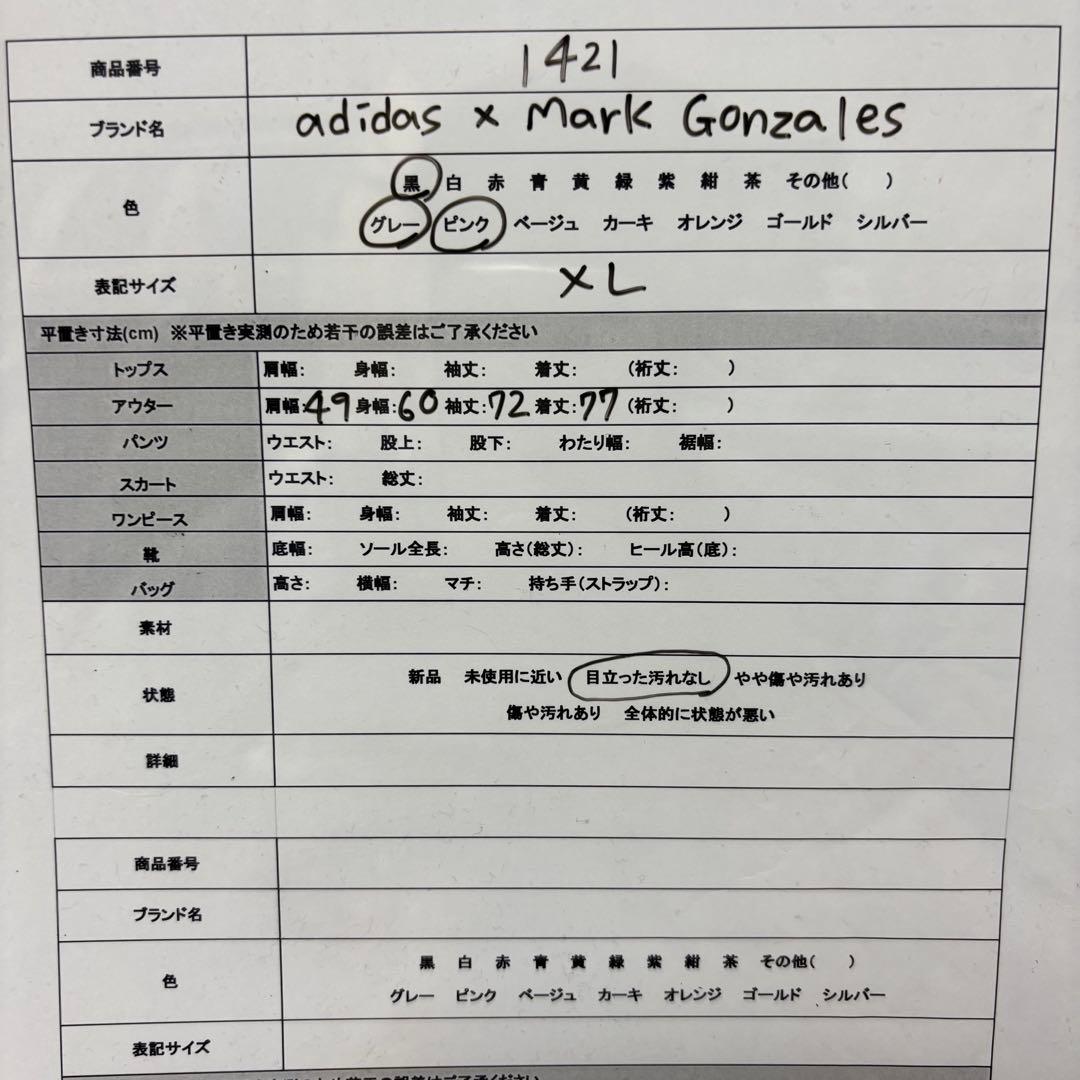 商品番号 1421
ブランド名 adidas × Mark Gonzales
色 黒 白 赤 青 黄 緑 紫 紺 茶 その他( )
グレー ピンク ベージュ カーキ オレンジ ゴールド シルバー
表記サイズ XL
平置き寸法(cm) ※平置き実測のため若干の誤差はご了承ください
トップス 肩幅: 身幅: 袖丈: 着丈: (裄丈: )
アウター 肩幅:49 身幅:60 袖丈:72 着丈:77 (裄丈: )
パンツ ウエスト: 股上: 股下: わたり幅: 裾幅:
スカート ウエスト: 総丈:
ワンピース 肩幅: 身幅: 袖丈: 着丈: (裄丈: )
靴 底幅: ソール全長: 高さ(総丈): ヒール高(底):
バッグ 高さ: 横幅: マチ: 持ち手(ストラップ):
素材
状態 新品 未使用に近い 目立った汚れなし やや傷や汚れあり
傷や汚れあり 全体的に状態が悪い
詳細
商品番号
ブランド名
色 黒 白 赤 青 黄 緑 紫 紺 茶 その他( )
グレー ピンク ベージュ カーキ オレンジ ゴールド シルバー
表記サイズ